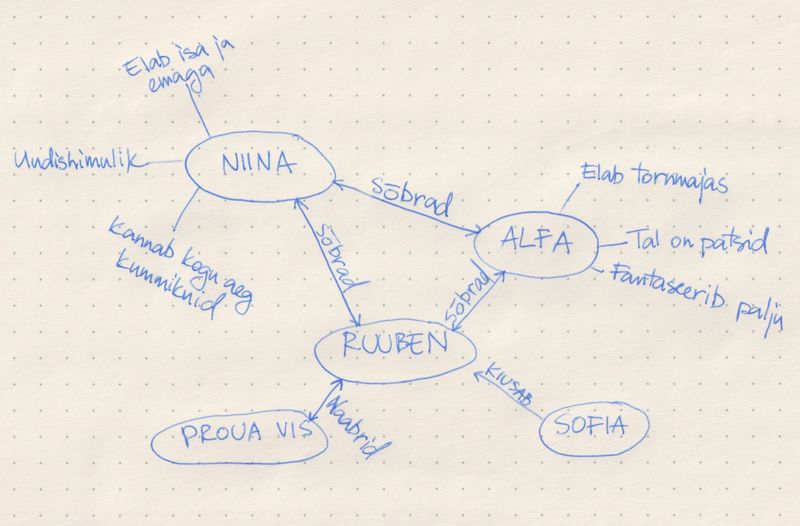 Elab isa ja
emaga
Uudishimulik
NIINA
Kannab kogu aeg
kummikuid
sõbrad
Elab tornmajas
ALFA
Tal on patsid
Fantaseerib palju
sõbrad
sõbrad
RUUBEN
KIUSAB
SOFIA
PROUA VIS
Naabrid